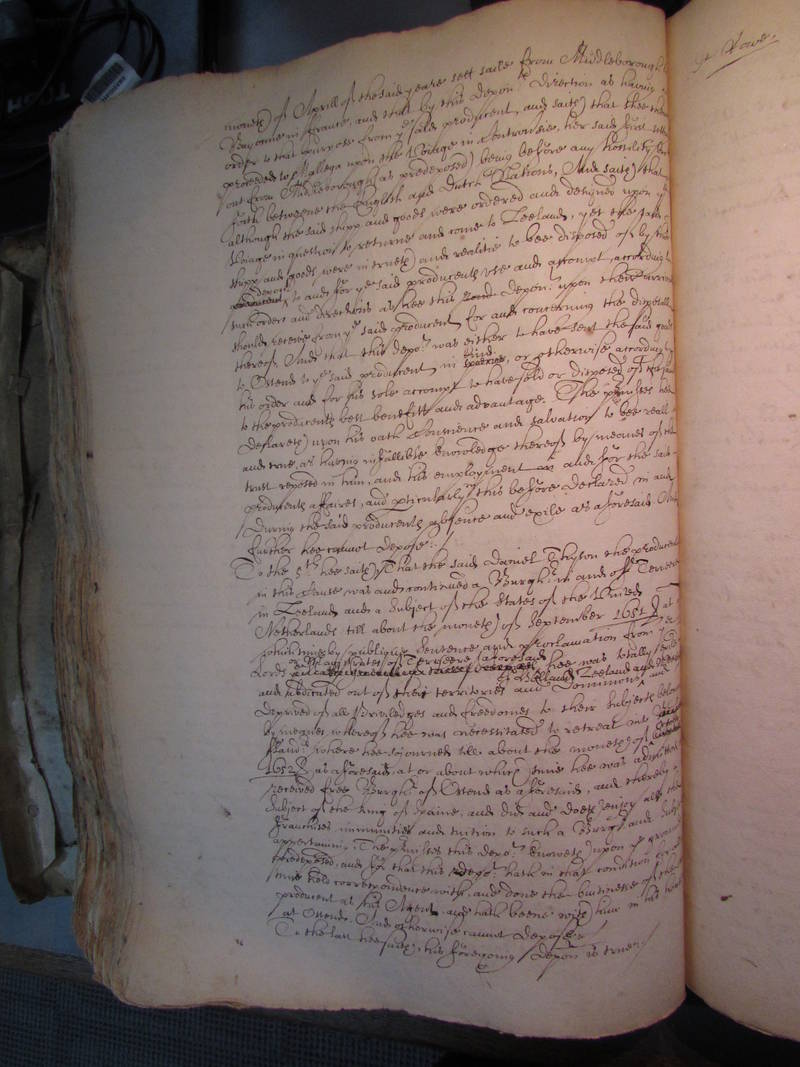 moneth of Aprill of the said yeare sett saile from Middleborough
Bayonne in france, and that by this depon.ts direction as having
order to that purpose from ye said producent, and saith that shee then
proceeded to Mallega upon the Voiage in Controversie, her said first setting
out from Middleborough (as predeposed) being before any hostility brake
forth betweene the English and Dutch Nations, And saith that
although the said shipp and goods were ordered and designed upon ye
Voiage in question to returne and come to Zeeland, yet the said
shipp and goods were in trueth and realitie to bee disposed of by this
deponent
producent, to and for ye said producents use and accompt, according to
such orders and directions as hee this depon.t upon their arrivall
should receive from ye said producent for and concerning the disposall
thereof And that this depo.t was either to have sent the said goods
to Ostend to ye said producent in kind
specie, or otherwise according to
his order and for his sole accompt to have sold or disposed of the same
to the producents best benefitt and advantage. The premisses hee
declareth upon his oath Conscience and salvation to bee reall
and true, as having infallible knowledge thereof by meanes of the
trust reposed in him, and his employment in and for the said
producents affaires, and perticularly in this before declared in and
during the said producents absence and exile as aforesaid. And
further hee cannot depose:./
To the 5th hee saith, That the said Daniel Thyson the producent
in this Cause was and continued a Burgher in and off Tervere
in Zeeland and a Subject of the States of the United
Netherlands till about the moneth of September 1651 at
which time by publique Sentence and proclamation from ye
Lords or Magistrates of Terveere aforesaid hee was totally exiled
of Holland Zeeland and
and abdicated out of their territories and Dominions and
deprived of all Priviledges and freedomes to their Subjects belonging
by meanes whereof hee was necessitated to retreat into
Fland.rs where hee sojourned till about the moneth of October
1652 as aforesaid, at or about which time hee was admitted and
received free Burgher of Ostend as aforesaid, and thereby a
Subject of the King of Spaine, and did and doeth enjoy all the
franchises immunities and tuition to such a Burgher and Subject
appertaining. The premisses this depo.t knoweth upon ye grounds
predeposed, and for that this depo.t hath in that condition
time held correspondence with, and done the businesse of the
producent as his Agent and hath beene with him in his house
at Ostend. And otherwise cannot depose./
To the last hee saith, his foregoing depon is true./